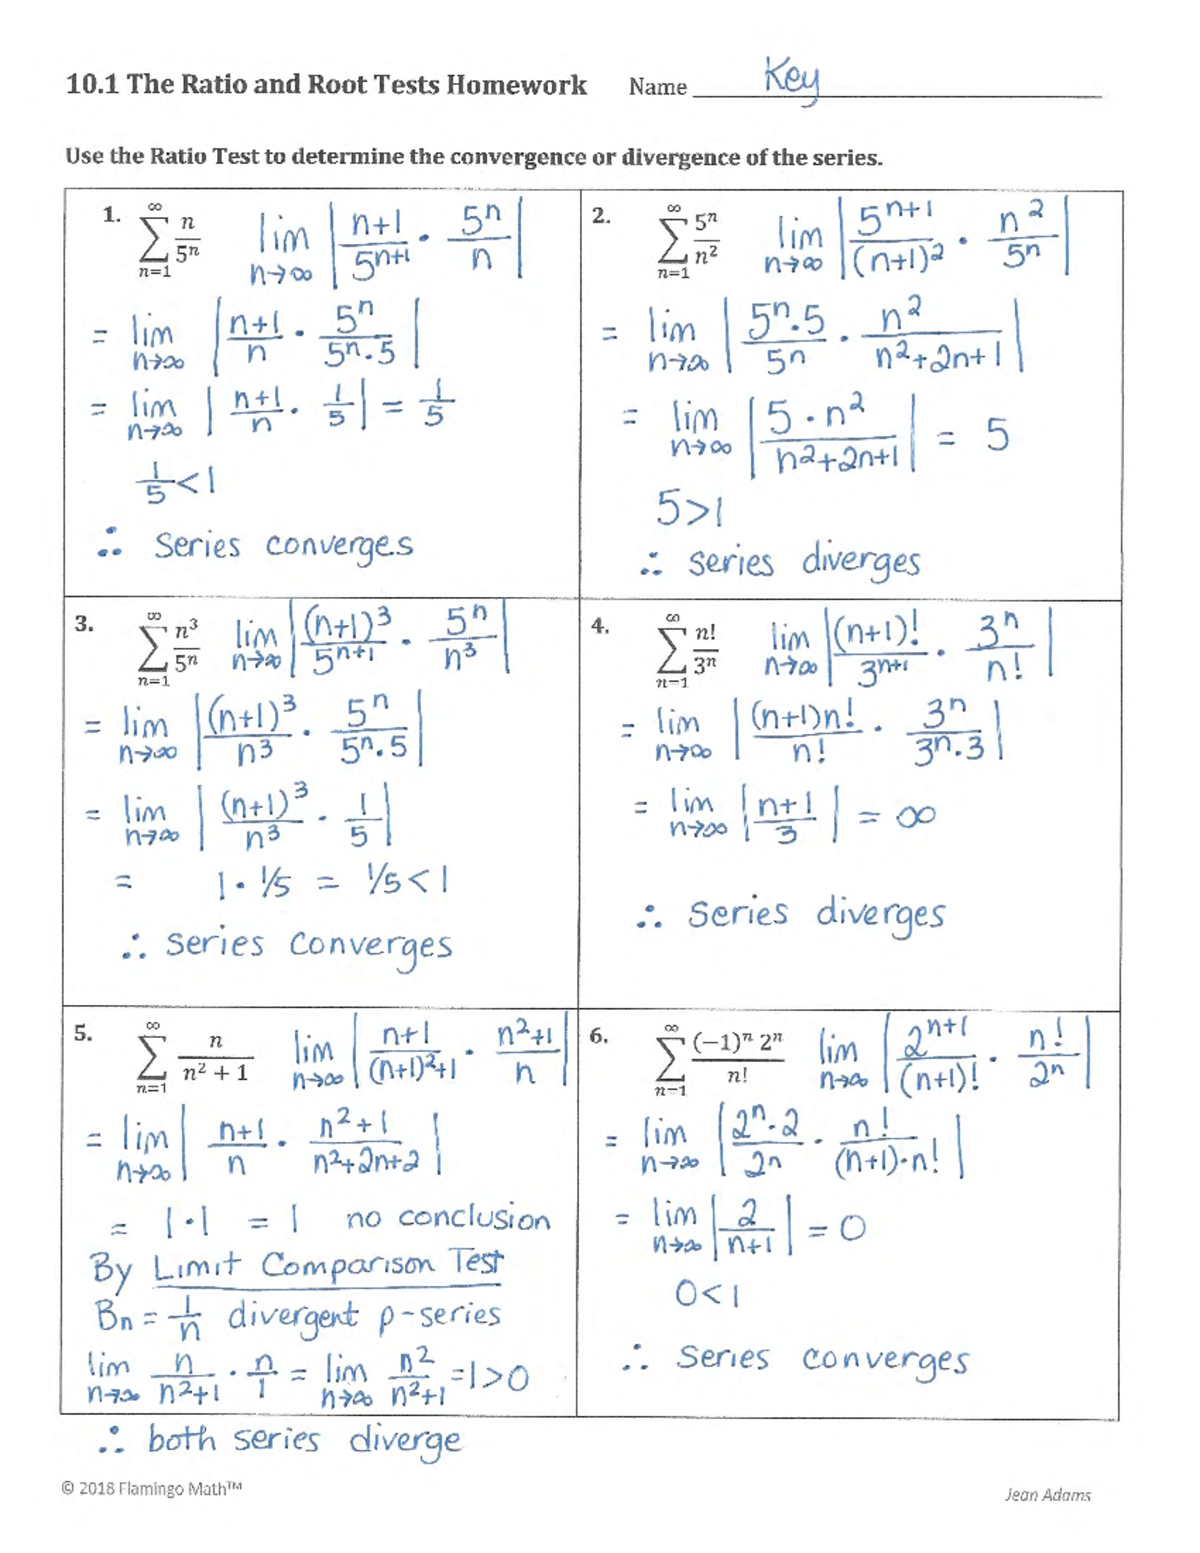 10.1 The Ratio and Root Tests Homework Name Key
Use the Ratio Test to determine the convergence or divergence of the series.
1. ∑_{n=1}^{∞} n/5ⁿ lim_{n→∞} | (n+1)/5ⁿ⁺¹ · 5ⁿ/n |
= lim_{n→∞} | (n+1)/n · 5ⁿ/(5ⁿ·5) |
= lim_{n→∞} | (n+1)/n · 1/5 | = 1/5
1/5 < 1
∴ series converges
2. ∑_{n=1}^{∞} 5ⁿ/n² lim_{n→∞} | 5ⁿ⁺¹/(n+1)² · n²/5ⁿ |
= lim_{n→∞} | (5ⁿ·5)/5ⁿ · n²/(n²+2n+1) |
= lim_{n→∞} | (5·n²)/(n²+2n+1) | = 5
5>1
∴ series diverges
3. ∑_{n=1}^{∞} n³/5ⁿ lim_{n→∞} | (n+1)³/5ⁿ⁺¹ · 5ⁿ/n³ |
= lim_{n→∞} | (n+1)³/n³ · 5ⁿ/(5ⁿ·5) |
= lim_{n→∞} | (n+1)³/n³ · 1/5 |
= 1 · 1/5 = 1/5 < 1
∴ series converges
4. ∑_{n=1}^{∞} n!/3ⁿ lim_{n→∞} | (n+1)!/3ⁿ⁺¹ · 3ⁿ/n! |
= lim_{n→∞} | (n+1)n!/n! · 3ⁿ/(3ⁿ·3) |
= lim_{n→∞} | (n+1)/3 | = ∞
∴ series diverges
5. ∑_{n=1}^{∞} n/(n² + 1) lim_{n→∞} | (n+1)/((n+1)²+1) · (n²+1)/n |
= lim_{n→∞} | (n+1)/n · (n²+1)/(n²+2n+2) |
= 1·1 = 1 no conclusion
By Limit Comparison Test
Bn = 1/n divergent p-series
lim_{n→∞} n/(n²+1) · n/1 = lim_{n→∞} n²/(n²+1) = 1>0
∴ both series diverge
6. ∑_{n=1}^{∞} (−1)ⁿ 2ⁿ/n! lim_{n→∞} | 2ⁿ⁺¹/(n+1)! · n!/2ⁿ |
= lim_{n→∞} | (2ⁿ·2)/2ⁿ · n!/((n+1)·n!) |
= lim_{n→∞} | 2/(n+1) | = 0
0<1
∴ series converges
© 2018 Flamingo Math™ Jean Adams